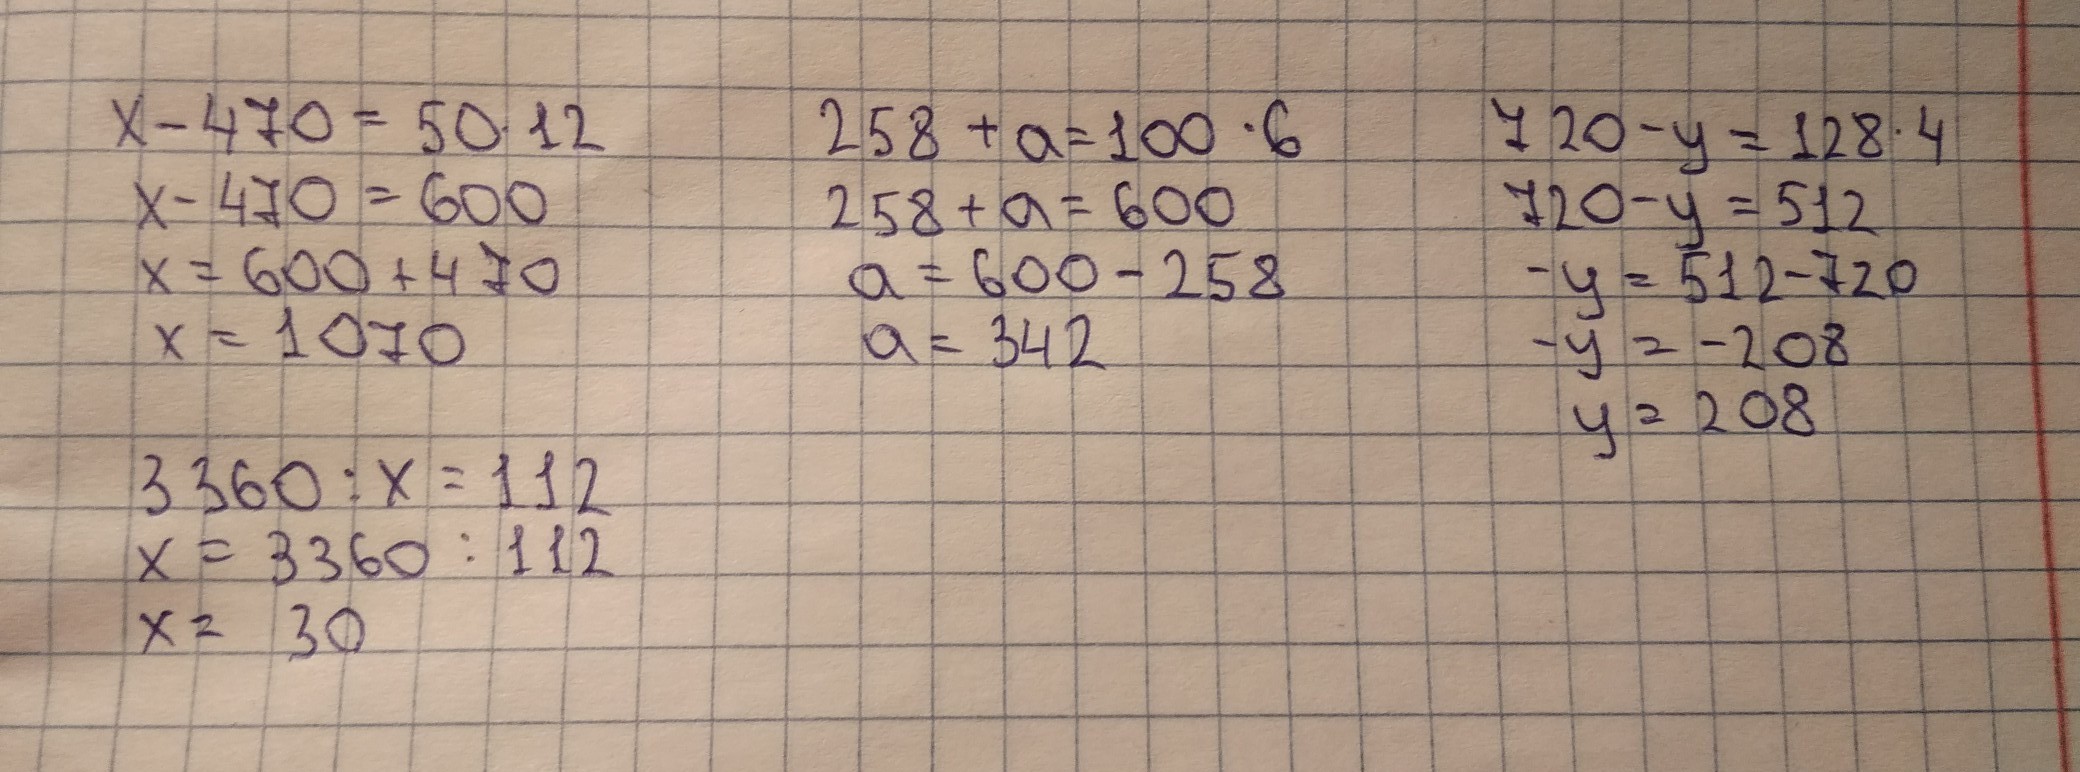 x - 470 = 50 · 12
x - 470 = 600
x = 600 + 470
x = 1070
258 + a = 100 · 6
258 + a = 600
a = 600 - 258
a = 342
720 - y = 128 · 4
720 - y = 512
-y = 512 - 720
-y = -208
y = 208
3360 : x = 112
x = 3360 : 112
x = 30